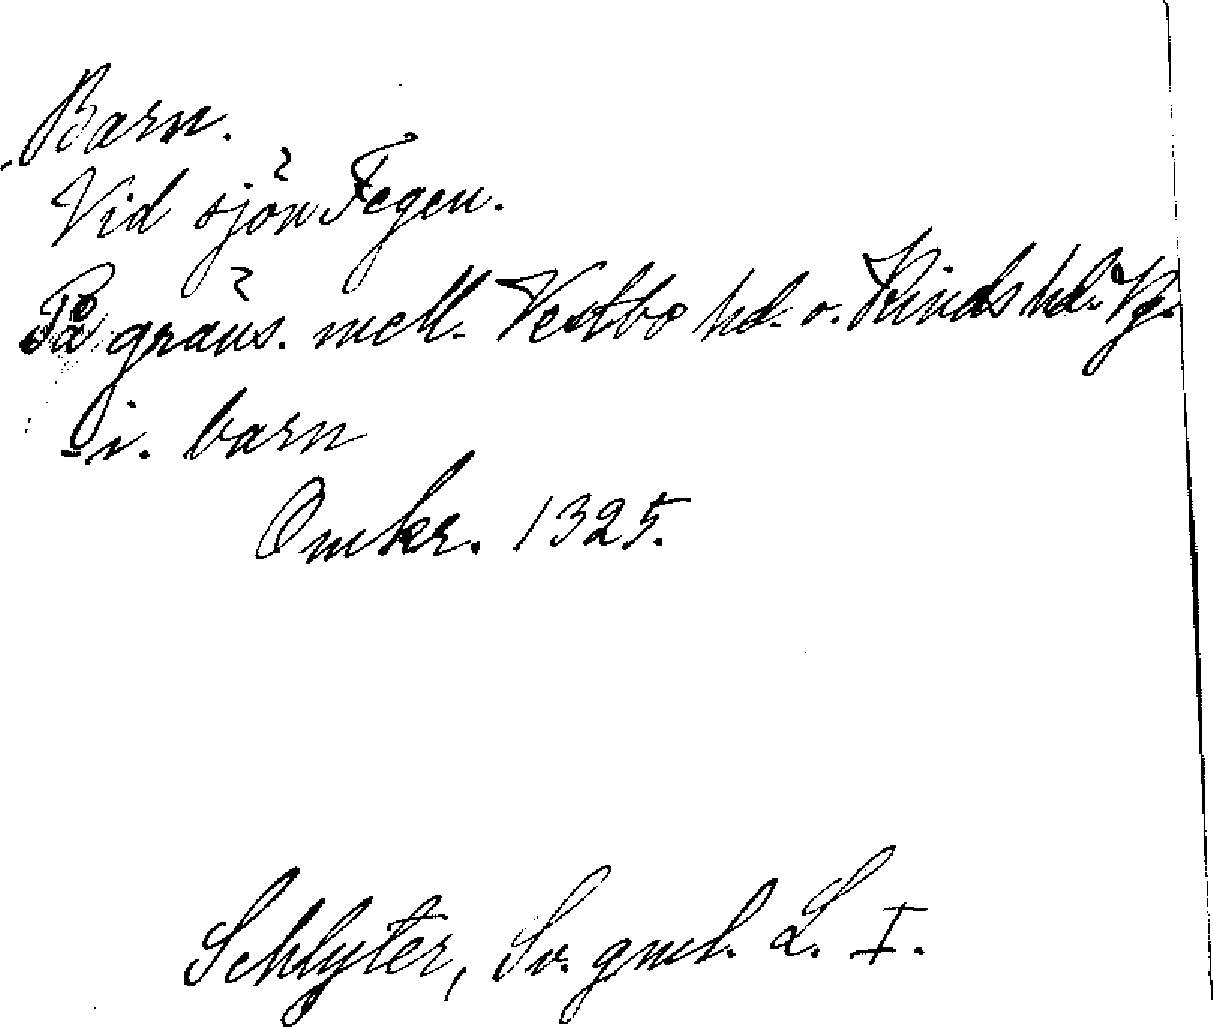 Barn.
Vid sjön Fegen.
På gräns. mell. Vestbo hd. o. Kinds hd. Vg.
i. barn
Omkr. 1325.
Schlyter, Sv. gml. L. I.